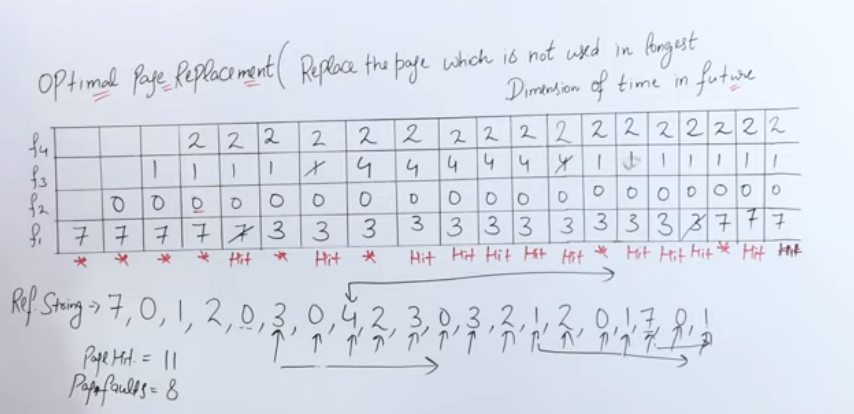 Optimal Page Replacement ( Replace the page which is not used in longest
Dimension of time in future
f4 2 2 2 2 2 2 2 2 2 2 2 2 2 2 2 2 2
f3 1 1 1 1 1 4 4 4 4 4 4 1 1 1 1 1 1 1
f2 0 0 0 0 0 0 0 0 0 0 0 0 0 0 0 0 0 0 0
f1 7 7 7 7 7 3 3 3 3 3 3 3 3 3 3 3 3 7 7 7
* * * * Hit * Hit * Hit Hit Hit Hit Hit * Hit Hit Hit * Hit Hit
Ref. String → 7, 0, 1, 2, 0, 3, 0, 4, 2, 3, 0, 3, 2, 1, 2, 0, 1, 7, 0, 1
Page Hit = 11
Page Faults = 8